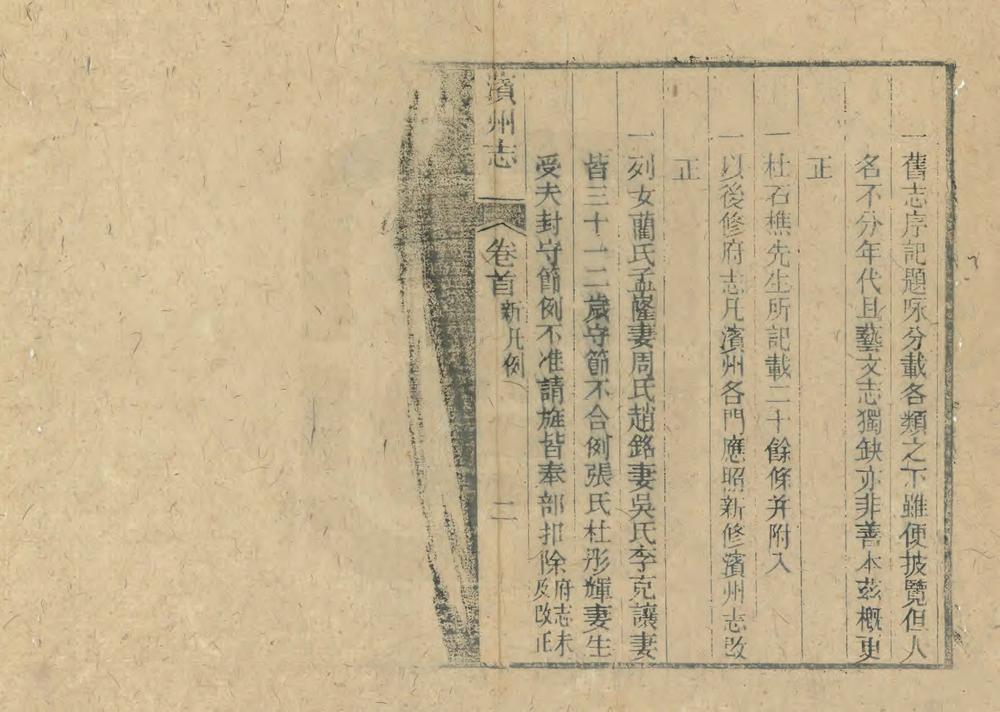 一舊志序記題咏分載各類之下雖便披覽但人
名不分年代且藝文志獨缺亦非善本玆概更
正
一杜石樵先生所記載二十餘條并附入
一以後修府志凡濱州各門應照新修濱州志改
正
一列女藺氏孟隆妻周氏趙銘妻吳氏李克讓妻
皆三十一二歲守節不合例張氏杜彤輝妻生
受夫封守節例不准請旌皆奉部扣除府志未
及改正
濱州志
卷首
新凡例
二